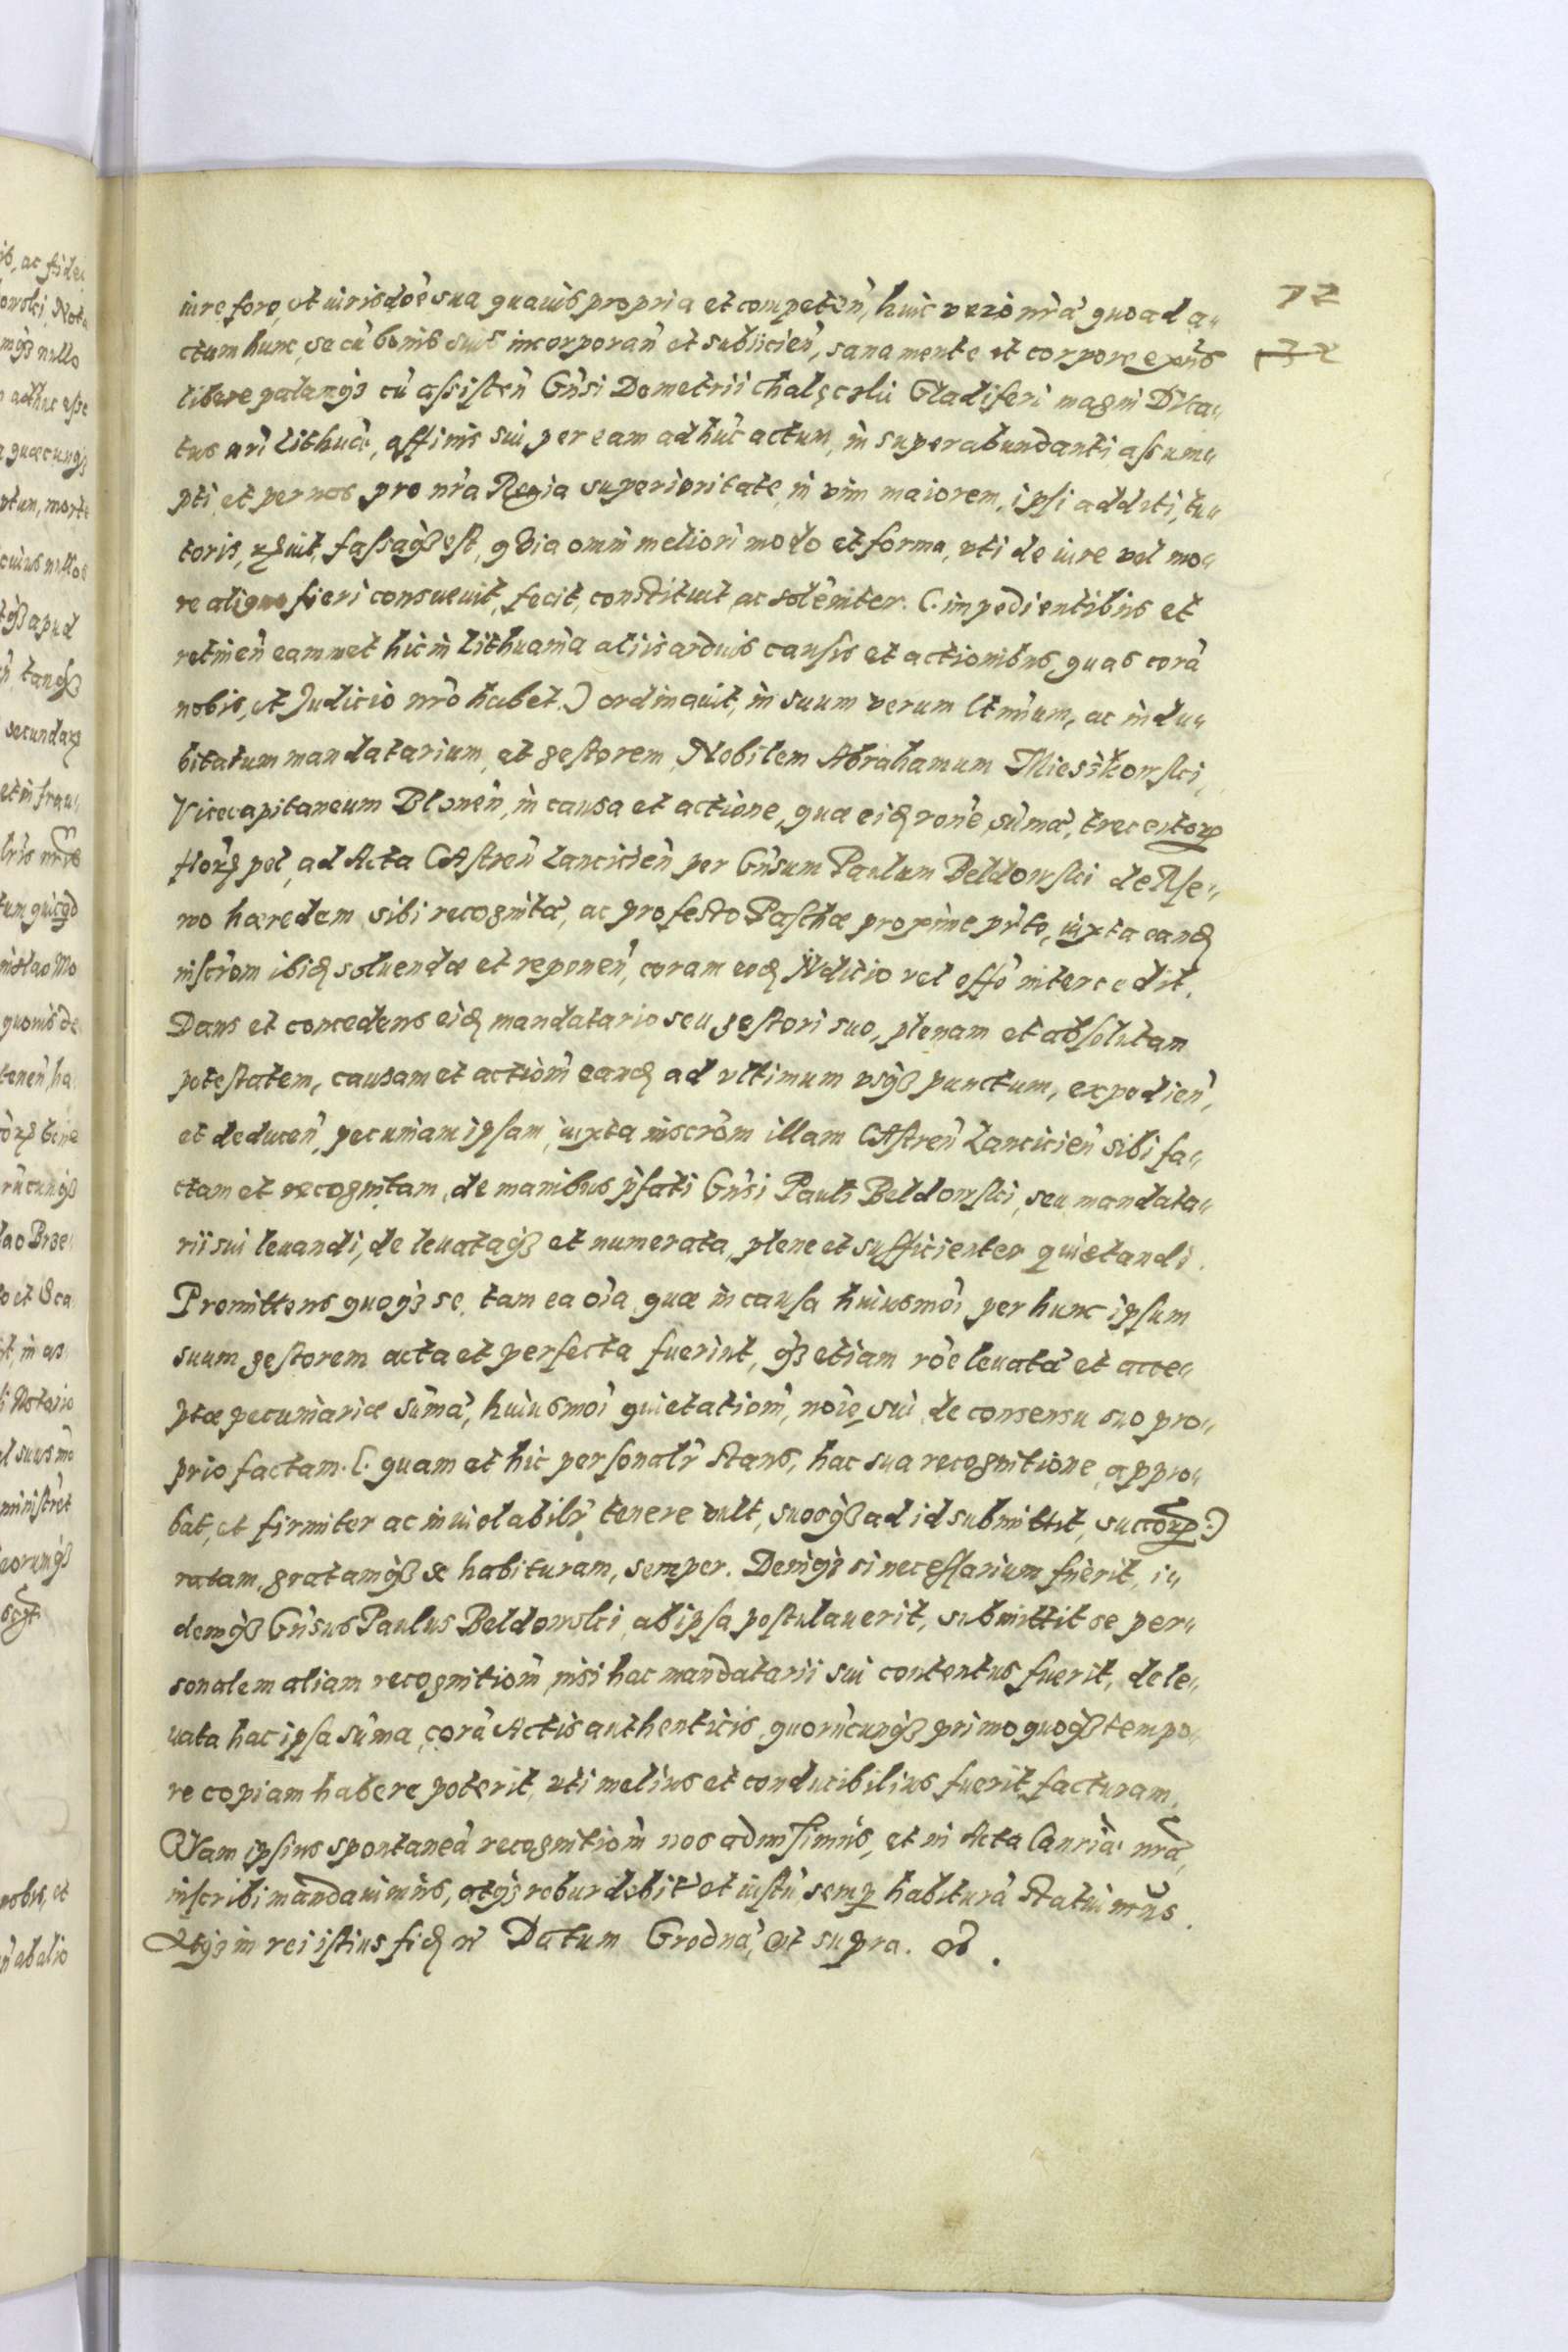 72
iure foro, et iurisdoe sua quauis propria et competen, huic vero nra quoad a„
ctum hunc, se cu bonis suis incorporan et subiicien, sana mente et corpore exns
libere palamq3 cu assisten Gnsi Dometrii Chalęcki Gladiferi magni Duca„
tus nri Lithua, affinis sui, per eam ad huc actum, in superabundanti assum„
pti, et per nos pro nra Regia superioritate, in vim maiorem, ipsi additi, tu„
toris, fassaq3 est, quia omni meliori modo et forma, uti de iure vel mo„
re aliquo fieri consueuit, fecit, constituit, ac solenniter. (. impedientibus et
retinen eammet hic in Lithuania aliis arduis causis et actionibus, quas cora
nobis, et Judicio nro habet.) ordinauit, in suum verum ltimum, ac indu„
bitatum mandatarium, et gestorem, Nobilem Abrahamum Miesskowski,
Vicecapitaneum Blonen, in causa et actione, quæ eid rone suma, trecentor
flor pol, ad Acta Castren Lancicien per Gnsum Paulum Beldowski de
mo hæredem, sibi recognita, ac pro festo Paschæ proxime prto, iuxta eand
inscrom ibid soluendæ et reponen, coram eod Iudicio vel offo intercedit.
Dans et concedens eid mandatario seu gestori suo, plenam et absolutam
potestatem, causam et actiom eand ad ultimum usq3 punctum, expedien,
et deducen, pecuniam ipsam, iuxta inscrom illam Castren Lancicien sibi fa„
ctam et recognitam, de manibus pfati Gnsi Pauli Beldowski, seu mandata„
rii sui leuandi, de leuataq3 et numerata, plene et sufficienter quietandi.
Promittens quoq3 se, tam ea oia, quæ in causa huiusmoi per hunc ipsum
suum gestorem acta et perfecta fuerint, q3 etiam roe leuata et acce„
ptæ pecuniariæ suma, huiusmoi quietatiom, noie sui de consensu suo pro„
prio factam. (. quam et hic personalr stans, hac sua recognitione appro„
bat, et firmiter ac inuiolabilr tenere vult, suosq3 ad id submittit, succor .)
ratam, gratamq3 se habituram, semper. Deniq3 si necessarium fuerit, i„
demq3 Gnsus Paulus Beldowski, ab ipsa postulauerit, submittit se per„
sonalem aliam recognitiom, nisi hac mandatarii sui contentus fuerit, de le„
uata hac ipsa suma, cora Actis authenticis, quorucunq3 primo quoq3 tempo„
re copiam habere poterit, uti melius et conducibilius fuerit, facturam.
Quam ipsius spontanea recognitiom nos admisimus, et in Acta Canria nra,
inscribi mandauimus, atq3 robur debitu et iustu semp habitura statuimus.
Atq3 in rei istius fid nr Datum Grodna, ut supra.